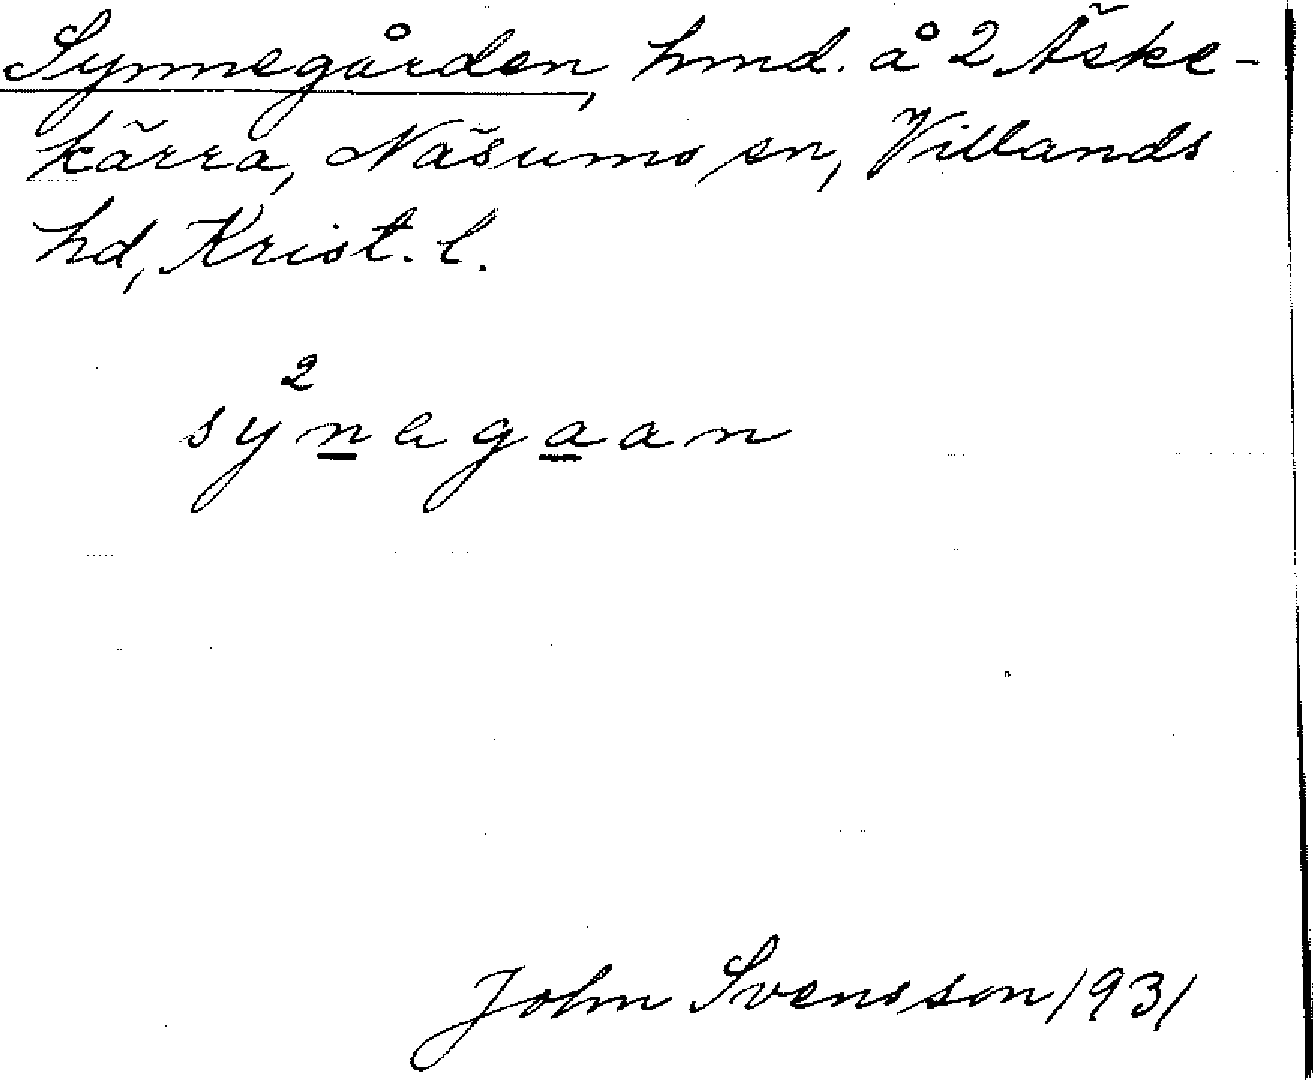 Synnegården, hmd. å 2 Äske-
kärra, Näsums sn, Villands
hd, Krist. l.
2
synegaan
John Svensson 1931